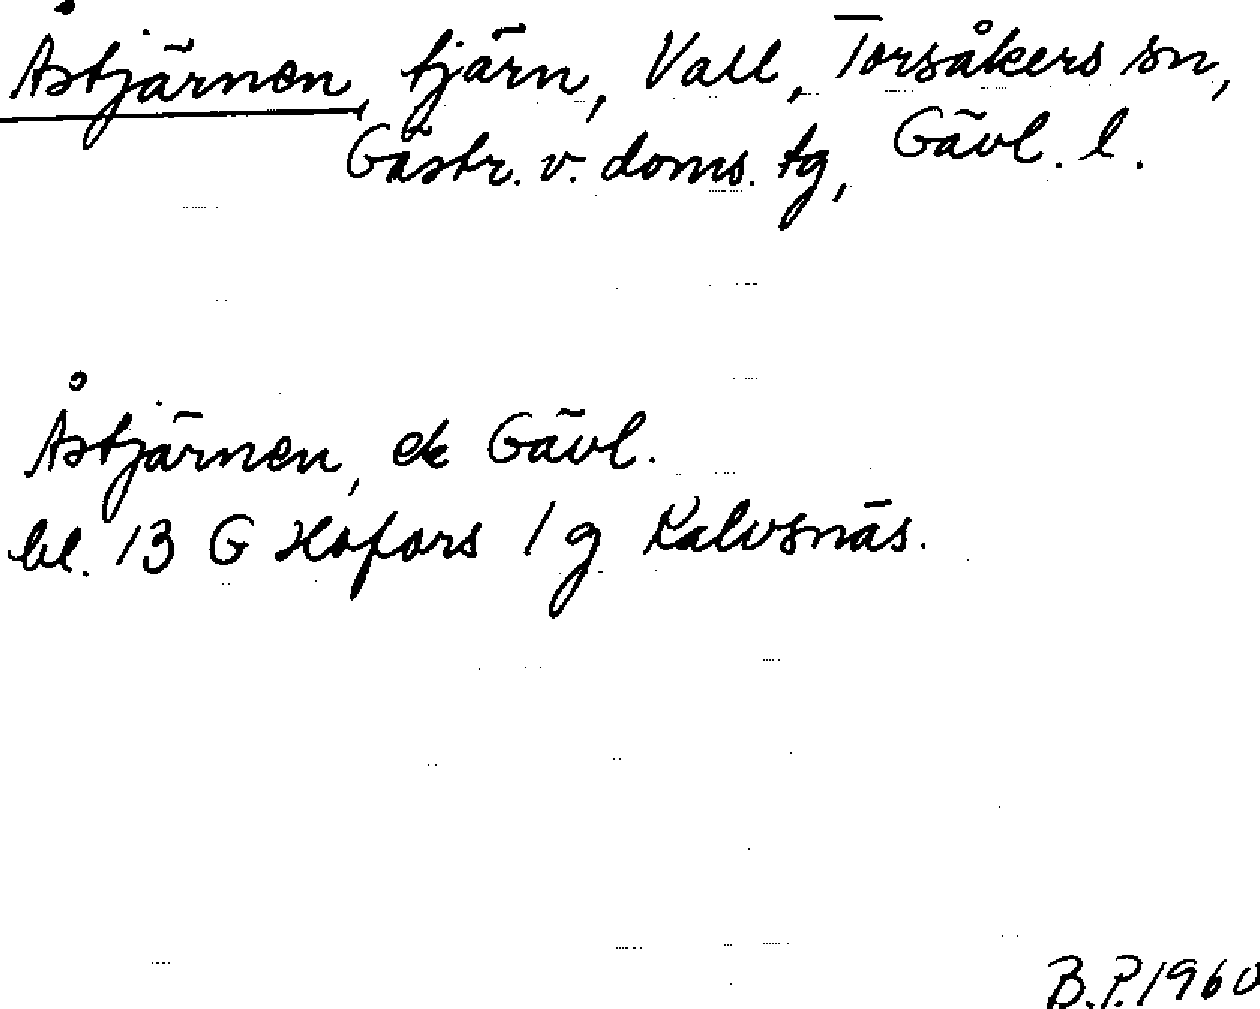 Åstjärnen, tjärn, Vall, Torsåkers sn,
Gästr. v. doms. tg, Gävl. l.
Åstjärnen, ek Gävl.
bl. 13 G Hofors 1 g Kalvsnäs.
B.P. 1960